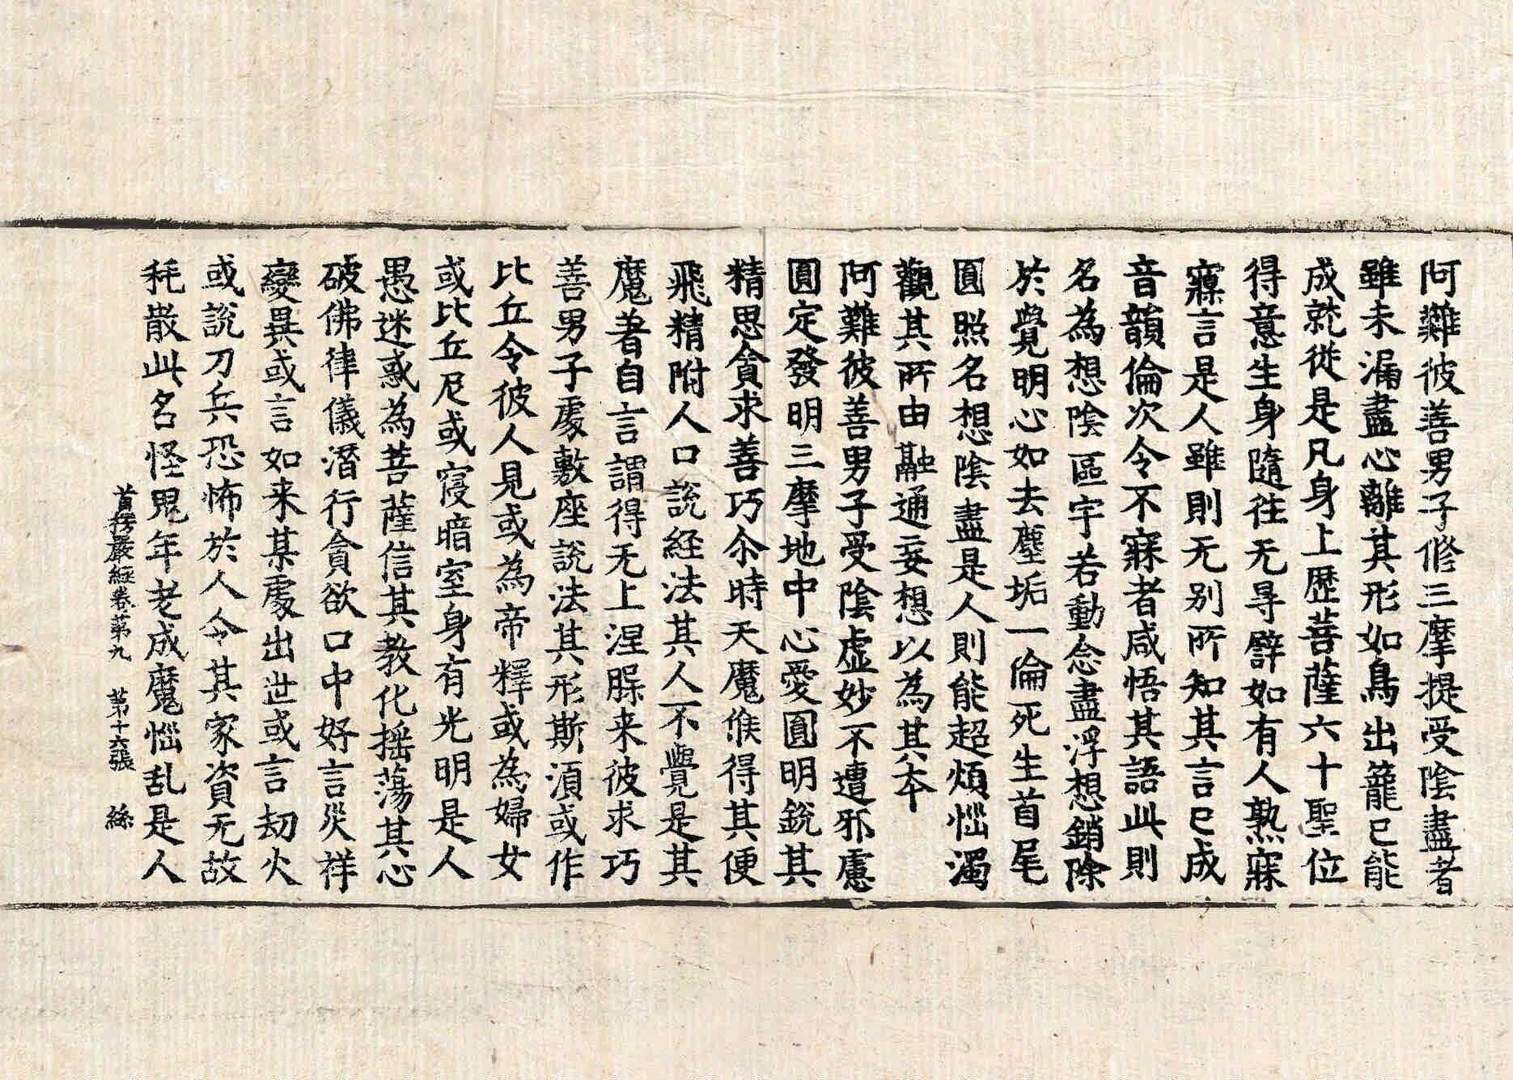 阿難彼善男子修三摩提受陰盡者
雖未漏盡心離其形如鳥出籠已能
成就從是凡身上歷菩薩六十聖位
得意生身隨往无㝵譬如有人熟寐
寱言是人雖則无別所知其言已成
音韻倫次令不寐者咸悟其語此則
名為想陰區宇若動念盡浮想銷除
於覺明心如去塵垢一倫死生首尾
圓照名想陰盡是人則能超煩惱濁
觀其所由融通妄想以為其本
阿難彼善男子受陰虛妙不遭邪慮
圓定發明三摩地中心愛圓明銳其
精思貪求善巧尒時天魔候得其便
飛精附人口說經法其人不覺是其
魔著自言謂得无上涅槃来彼求巧
善男子處敷座說法其形斯湏或作
比丘令彼人見或為帝釋或為婦女
或比丘尼或寝暗室身有光明是人
愚迷惑為菩薩信其教化搖蕩其心
破佛律儀潛行貪欲口中好言災祥
變異或言如来某處出世或言劫火
或說刀兵恐怖於人令其家資无故
秏散此名怪鬼年老成魔惱乱是人
首楞嚴經卷第九 第十六張 絲